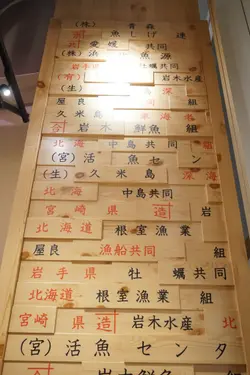 (株) 青森
魚しげ 達
愛媛 共同
(株)浜 魚源
岩手県 牡蠣共同
(有) 岩木水産
(生)
屋良 組
久米島
岩木 鮮魚 組
北海 中島共同
(宮)活 魚セン
(生) 久米島 深海
北海 中島共同
宮崎県 造 岩
北海道 根室漁業
屋良 漁船共同 組
岩手県 牡蠣共同
北海道 根室漁業 組
宮崎 県造 岩木水産 北
(宮)活魚センタ